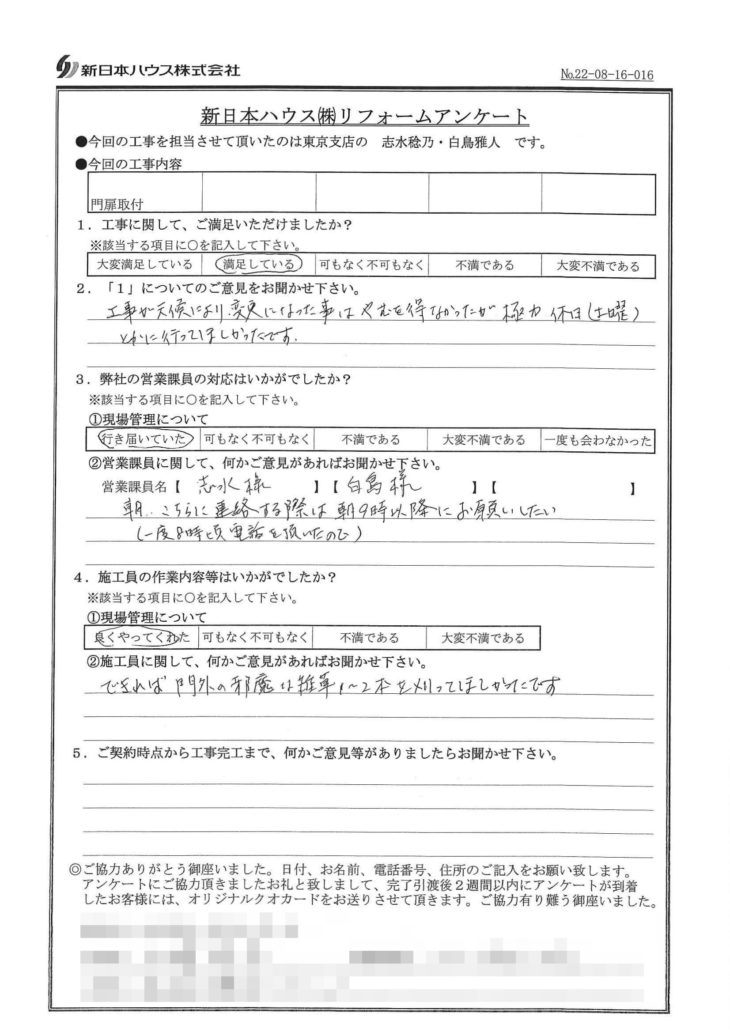 新日本ハウス株式会社
№22-08-16-016
新日本ハウス㈱リフォームアンケート
●今回の工事を担当させて頂いたのは東京支店の 志水稔乃・白鳥雅人 です。
●今回の工事内容
門扉取付
1．工事に関して、ご満足いただけましたか？
※該当する項目に○を記入して下さい。
大変満足している 満足している 可もなく不可もなく 不満である 大変不満である
2．「1」についてのご意見をお聞かせ下さい。
工事が天候により変更になった事はやむを得なかったが極力休日(土曜)
とかに行ってほしかったです.
3．弊社の営業課員の対応はいかがでしたか？
※該当する項目に○を記入して下さい。
①現場管理について
行き届いていた 可もなく不可もなく 不満である 大変不満である 一度も会わなかった
②営業課員に関して、何かご意見があればお聞かせ下さい。
営業課員名【 志水様 】【 白鳥様 】【 】
朝、こちらに連絡する際は朝9時以降にお願いしたい
(一度8時頃電話を頂いたので)
4．施工員の作業内容等はいかがでしたか？
※該当する項目に○を記入して下さい。
①現場管理について
良くやってくれた 可もなく不可もなく 不満である 大変不満である
②施工員に関して、何かご意見があればお聞かせ下さい。
できれば門外の邪魔な雑草1～2本を刈ってほしかったです
5．ご契約時点から工事完工まで、何かご意見等がありましたらお聞かせ下さい。
◎ご協力ありがとう御座いました。日付、お名前、電話番号、住所のご記入をお願い致します。
アンケートにご協力頂きましたお礼と致しまして、完了引渡後２週間以内にアンケートが到着
したお客様には、オリジナルクオカードをお送りさせて頂きます。ご協力有り難う御座いました。